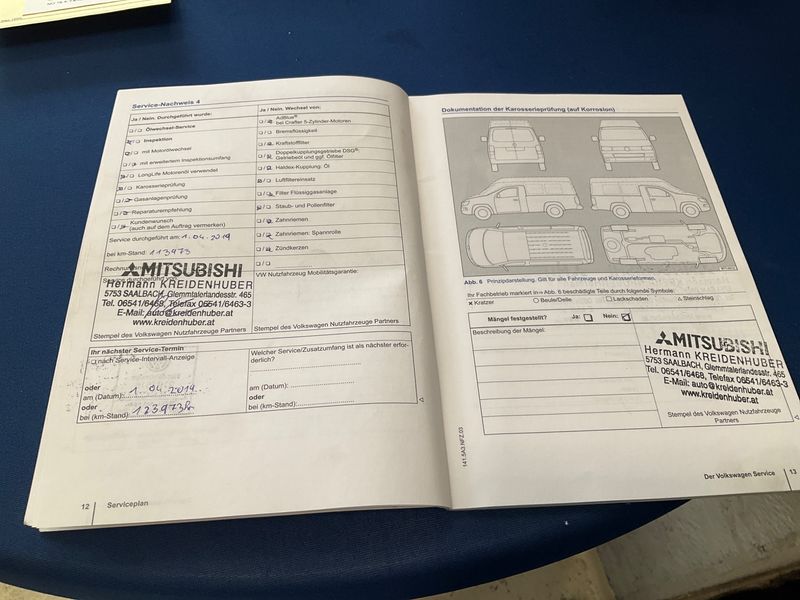 Service-Nachweis 4
Ja / Nein, Durchgeführt wurde:
Ölwechsel-Service
Inspektion
mit Motorölwechsel
mit erweitertem Inspektionsumfang
LongLife Motorenöl verwendet
Karosserieprüfung
Gasanlagenprüfung
Reparaturempfehlung
Kundenwunsch
(auch auf dem Auftrag vermerken)
Service durchgeführt am: 1.04.2019
bei km-Stand: 113973
MITSUBISHI
Hermann KREIDENHUBER
5753 SAALBACH, Glemmtalerlandesstr. 465
Tel. 06541/6468, Telefax 06541/6463-3
E-Mail: auto@kreidenhuber.at
www.kreidenhuber.at
Stempel des Volkswagen Nutzfahrzeuge Partners
Ja / Nein, Wechsel von:
AdBlue®
bei Crafter 5-Zylinder-Motoren
Bremsflüssigkeit
Kraftstofffilter
Doppelkupplungsgetriebe DSG®:
Getriebeöl und ggf. Ölfilter
Haldex-Kupplung: Öl
Luftfiltereinsatz
Filter Flüssiggasanlage
Staub- und Pollenfilter
Zahnriemen
Zahnriemen: Spannrolle
Zündkerzen
VW Nutzfahrzeug Mobilitätsgarantie:
Stempel des Volkswagen Nutzfahrzeuge Partners
Ihr nächster Service-Termin
nach Service-Intervall-Anzeige
oder
am (Datum):
oder
bei (km-Stand):
Welcher Service/Zusatzumfang ist als nächster erfor-
derlich?
am (Datum):
oder
bei (km-Stand):
12 Serviceplan
Dokumentation der Karosserieprüfung (auf Korrosion)
Abb. 6 Prinzipdarstellung. Gilt für alle Fahrzeuge und Karosserieformen.
Ihr Fachbetrieb markiert in ⇒ Abb. 6 beschädigte Teile durch folgende Symbole:
× Kratzer ○ Beule/Delle □ Lackschäden △ Steinschlag
Mängel festgestellt? Ja: Nein:
Beschreibung der Mängel:
MITSUBISHI
Hermann KREIDENHUBER
5753 SAALBACH, Glemmtalerlandesstr. 465
Tel. 06541/6468, Telefax 06541/6463-3
E-Mail: auto@kreidenhuber.at
www.kreidenhuber.at
Stempel des Volkswagen Nutzfahrzeuge
Partners
141.5A3.NFZ.03
Der Volkswagen Service 13